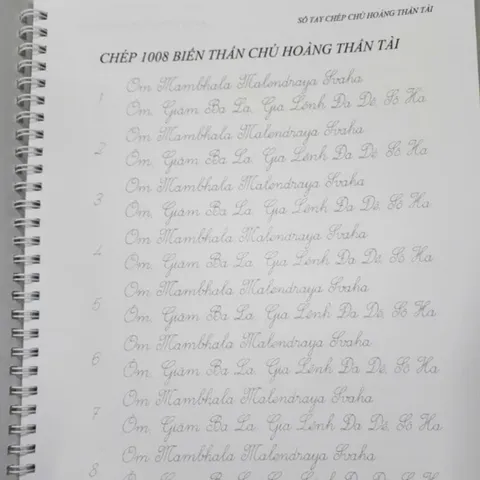 SỔ TAY CHÉP CHÚ HOÀNG THẦN TÀI
CHÉP 1008 BIẾN THẦN CHÚ HOÀNG THẦN TÀI
1 Om Mambhala Malendraya Svaha
Ôm, Giám Ba La, Gia Lênh Đa Dê, Sô Ha
Om Mambhala Malendraya Svaha
2 Ôm, Giám Ba La, Gia Lênh Đa Dê, Sô Ha
Om Mambhala Malendraya Svaha
3 Ôm, Giám Ba La, Gia Lênh Đa Dê, Sô Ha
Om Mambhala Malendraya Svaha
4 Ôm, Giám Ba La, Gia Lênh Đa Dê, Sô Ha
Om Mambhala Malendraya Svaha
5 Ôm, Giám Ba La, Gia Lênh Đa Dê, Sô Ha
Om Mambhala Malendraya Svaha
6 Ôm, Giám Ba La, Gia Lênh Đa Dê, Sô Ha
Om Mambhala Malendraya Svaha
7 Ôm, Giám Ba La, Gia Lênh Đa Dê, Sô Ha
Om Mambhala Malendraya Svaha
8 Ôm, Giám Ba La, Gia Lênh Đa Dê, Sô Ha